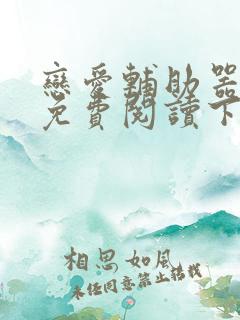 戀愛輔助器
免費閱讀下
相思如風
未經同意禁止轉載